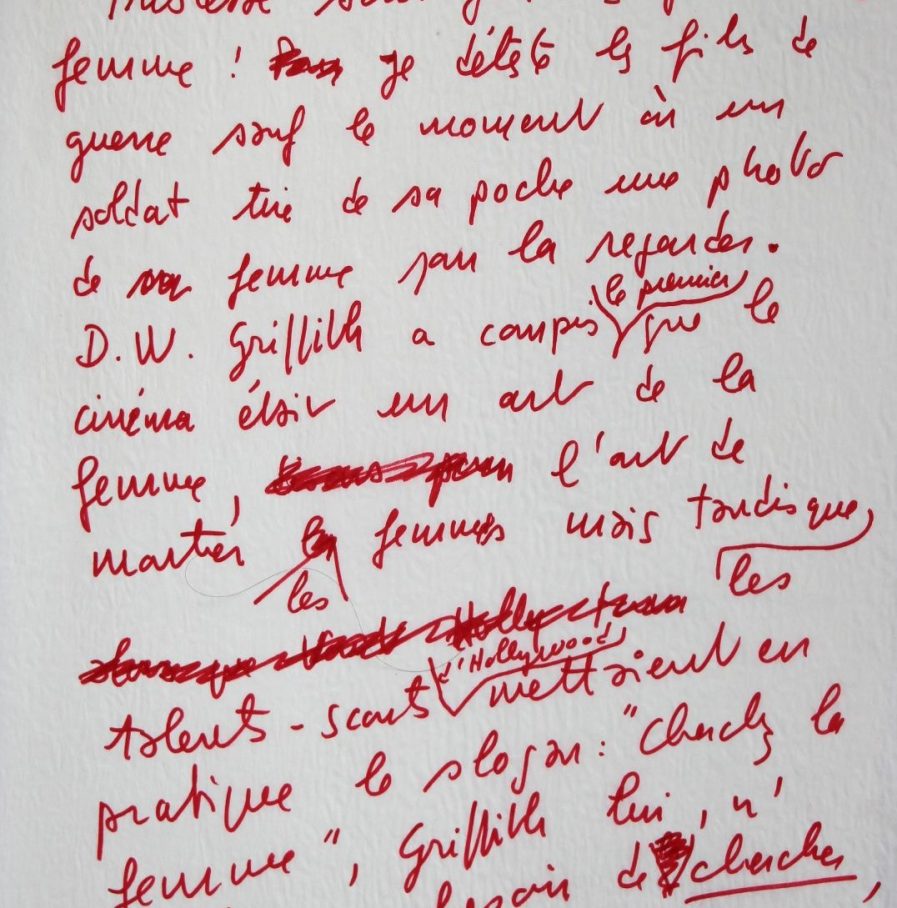 Tristesse
femme ! je déteste les films de
guerre sauf le moment où un
soldat tire de sa poche une photo
de sa femme pour la regarder.
D.W. Griffith a compris le premier que le
cinéma était un art de la
femme, l'art de
montrer les femmes mais tandis que
les
talents-scouts d'Hollywood mettaient en
pratique le slogan : "Cherchez la
femme", Griffith lui, n'
besoin de chercher,